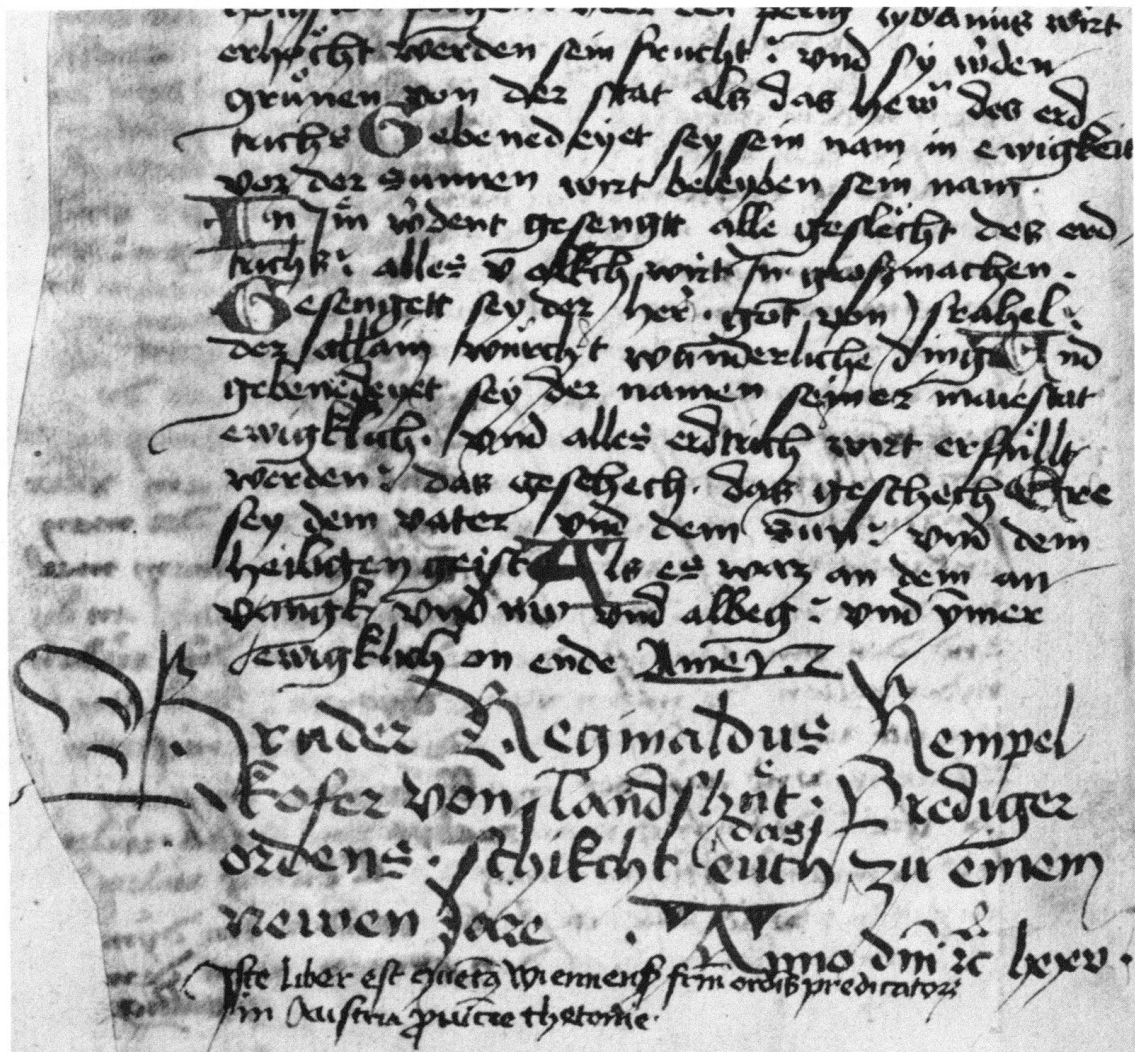 den perg lybanus wirt
erhöcht werden sein frucht : vnd sy wˀden
grünen von der stat als das hew des erd
trichs Gebenedeyet sey sein nam in ewigkeit
vor der Sunnen wirt beleyben sein nam .
In im wˀdent gesengtt alle geslächt des erd
trichs : alles volkch wirt in großmachen .
Gesengett sey der her . got von Israhel :
der allain würcht wunderliche ding Und
gebenedeyet sey der namen seiner maiestat
ewigklich . vnd alles erdtrich wirt erfüllt
werden : das geschech . das geschech Ere
sey dem vater vnd dem Sun : vnd dem
heiligen geist Als es waz an dem an
vangk vnd nw vnd albeg : vnd ymer
ewigklich on ende Amen .
Bruder Reginaldus Rempel
kofer von landßhüt . Prediger
ordens . schikcht das euch zu einem
newen Jare . Anno dm̄ ꝛc lxxv .
Iste liber est ꝯuētꝰ Wiennenß frm̄ ordīs predicatorꝝ
in Austria ꝓuīcie theotonie .